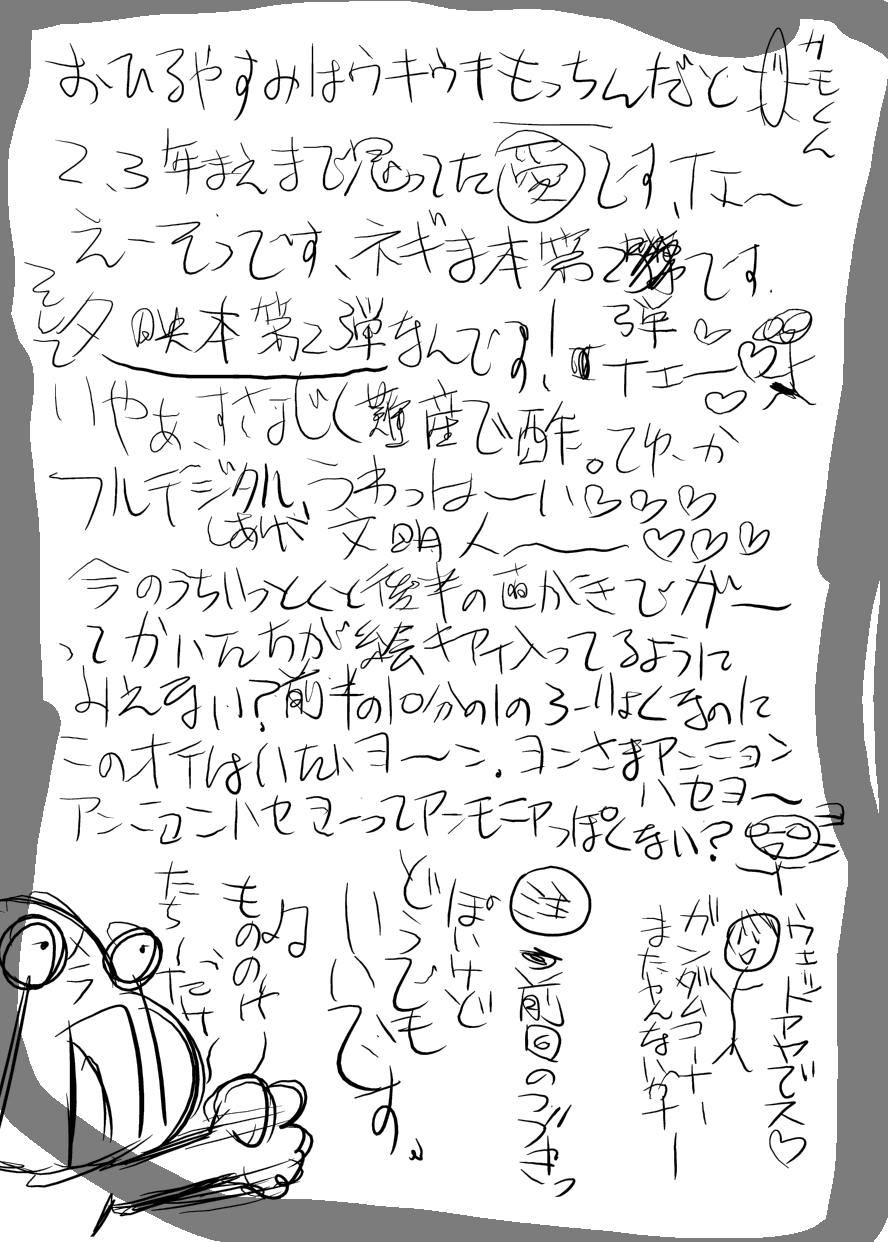 おひるやすみはウキウキもっちんだと
カモくん
2、3年まえまで思ってた愛です、イエ〜
えーそうです、ネギま本第2です.
弾
そして
映本第2弾なんです!
イエー
いやぁ、すさまじく難産で酢。てゆーか
フルデジタル、うわっはーい♡♡♡
しあげ 文明人〜♡♡♡
今のうちいっとくと後半の画がきでがー
ってかいたんちが絵キアイ入ってるように
みえない?前半の10分の1のろーりょくなのに
このオイはいたいヨーン. ヨンさまアンニョン
ハセヨ〜
アンニョンハセヨーってアンモニアっぽくない?
ウェットアヤでス♡
ガンダムコーナー
まだやんないかナー
前回のつづきっ
ぽいけど
どうでも
いいです。
♫
もののけ
たち〜だけ